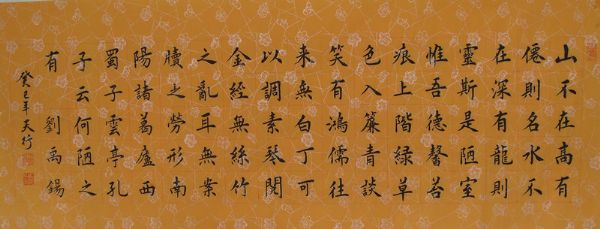 山不在高有
僊則名水不
在深有龍則
靈斯是陋室
惟吾德馨苔
痕上階緑草
色入簾青談
笑有鴻儒往
来無白丁可
以調素琴閲
金經無絲竹
之亂耳無案
牘之勞形南
陽諸葛廬西
蜀子雲亭孔
子云何陋之
有 劉禹錫
癸巳年天行